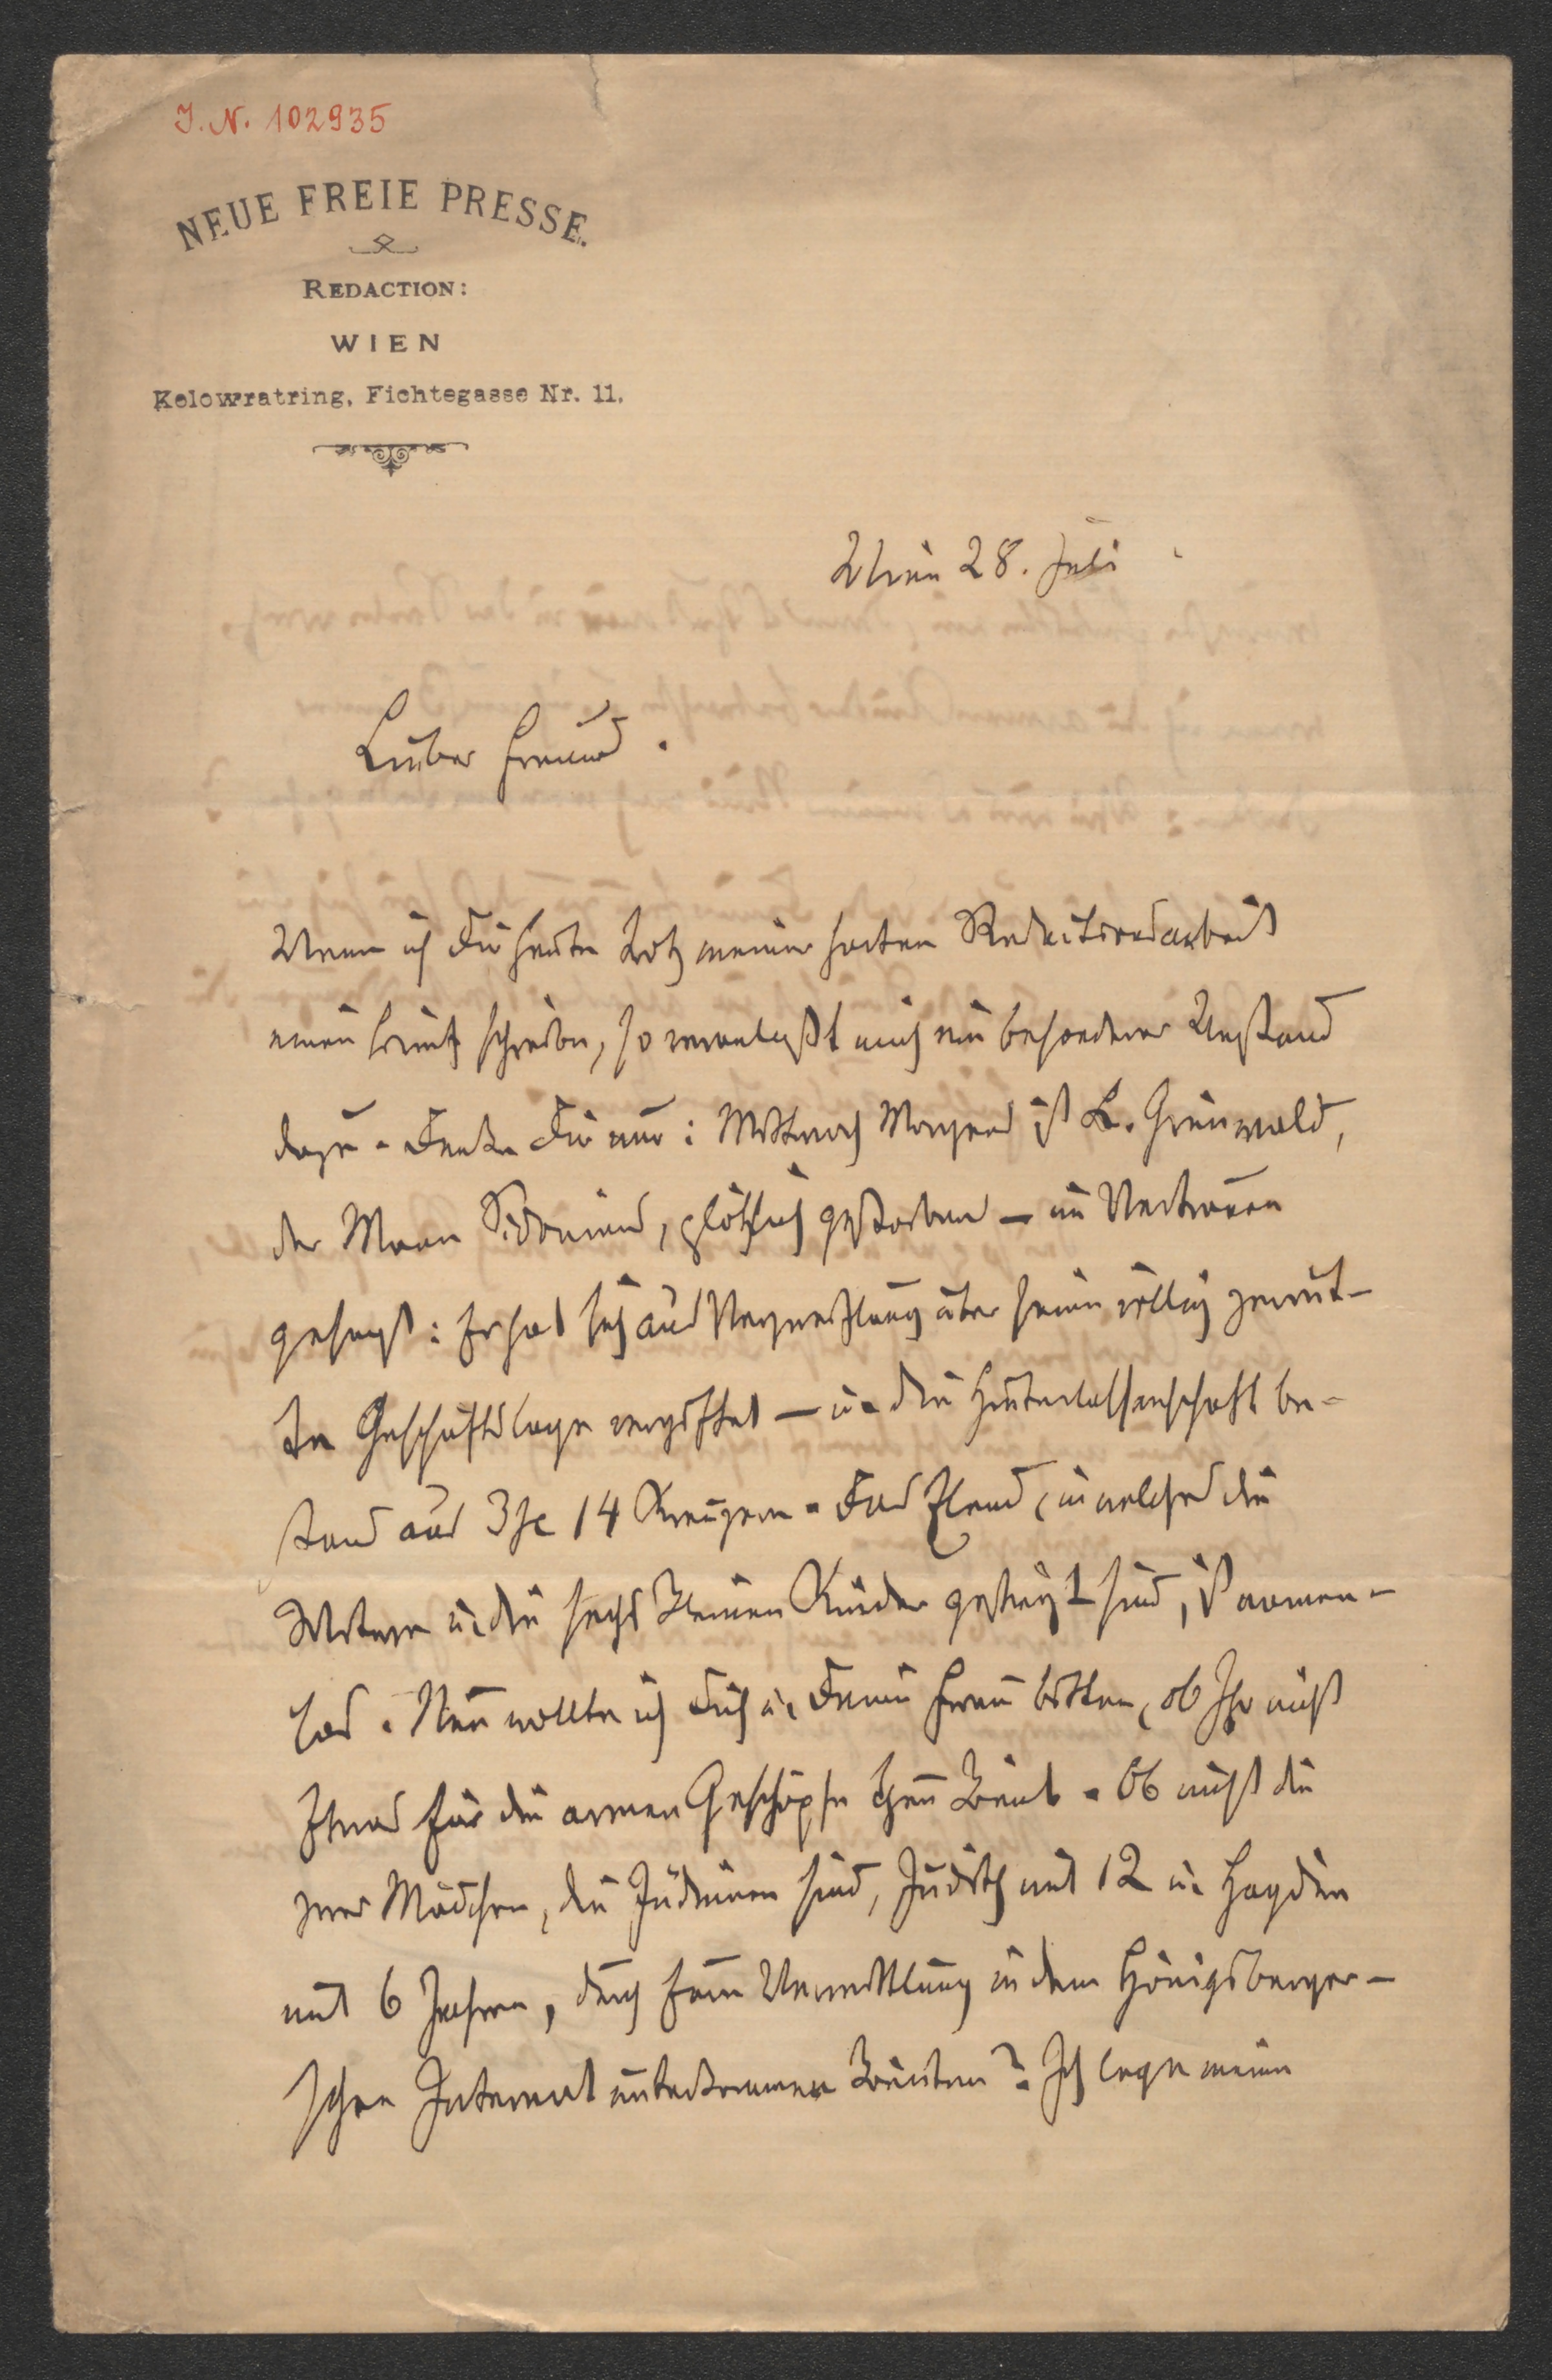 I.N. 102935
NEUE FREIE PRESSE.
REDACTION:
WIEN
Kolowratring, Fichtegasse Nr. 11.
Wien 28. Juli
Lieber Freund.
Wenn ich Dir heute trotz meiner harten Redactionsarbeit
einen Brief schreibe, so veranlaßt mich ein besonderer Umstand
dazu. Denke Dir nur: Mittwoch Morgens ist L. Grünwald,
der Mann Sidoniens, plötzlich gestorben – im Vertrauen
gesagt: Er hat sich aus Verzweiflung über seine völlig zerrüt-
te Geschäftslage vergiftet – u. die Hinterlassenschaft be-
stand aus 3 fl 14 Kreuzern. Das Elend, in welches die
Witwe u. die sechs kleinen Kinder gestürzt sind, ist namen-
los. Nun wollte ich Dich u. Deine Frau bitten, ob Ihr nicht
Etwas für die armen Geschöpfe thun könnt. Ob nicht die
zwei Mädchen, die Jüdinnen sind, Judith mit 12 u.
mit 6 Jahren, durch Eure Vermittlung in dem Königsberger-
schen Internat unterkommen könnten? Ich lege meine